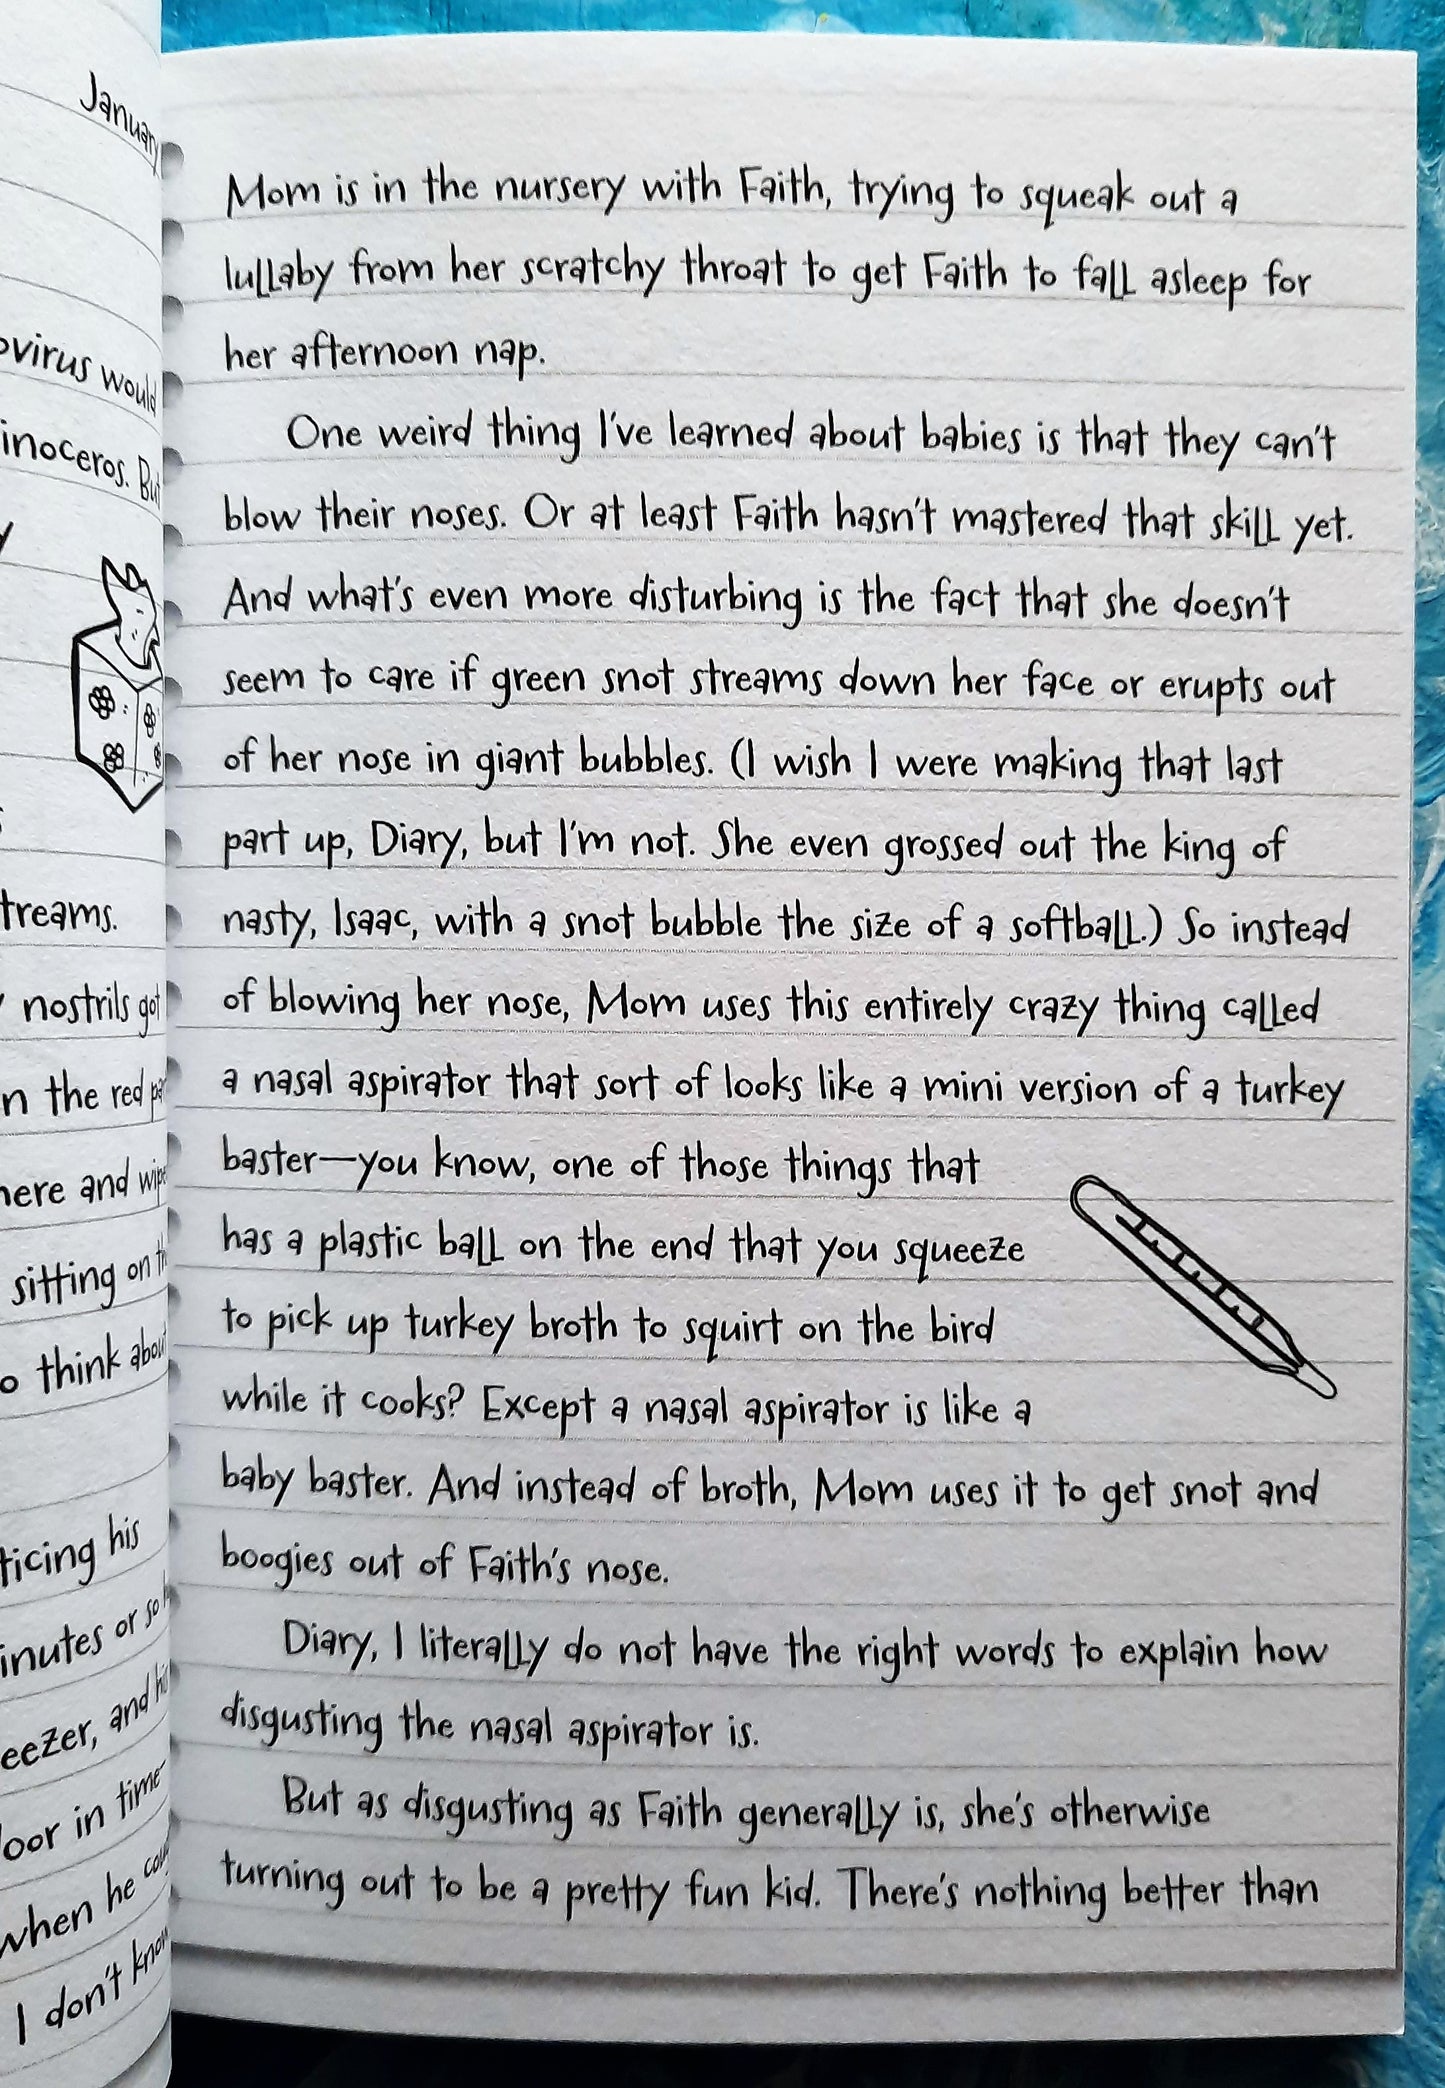 January
ovirus would
inoceros. But
treams.
nostrils got
n the red
here and
sitting on
o think about
ticing his
inutes or so
eezer, and
oor in time
when he
I don't know
Mom is in the nursery with Faith, trying to squeak out a
lullaby from her scratchy throat to get Faith to fall asleep for
her afternoon nap.
One weird thing I've learned about babies is that they can't
blow their noses. Or at least Faith hasn't mastered that skill yet.
And what's even more disturbing is the fact that she doesn't
seem to care if green snot streams down her face or erupts out
of her nose in giant bubbles. (I wish I were making that last
part up, Diary, but I'm not. She even grossed out the king of
nasty, Isaac, with a snot bubble the size of a softball.) So instead
of blowing her nose, Mom uses this entirely crazy thing called
a nasal aspirator that sort of looks like a mini version of a turkey
baster—you know, one of those things that
has a plastic ball on the end that you squeeze
to pick up turkey broth to squirt on the bird
while it cooks? Except a nasal aspirator is like a
baby baster. And instead of broth, Mom uses it to get snot and
boogies out of Faith's nose.
Diary, I literally do not have the right words to explain how
disgusting the nasal aspirator is.
But as disgusting as Faith generally is, she's otherwise
turning out to be a pretty fun kid. There's nothing better than